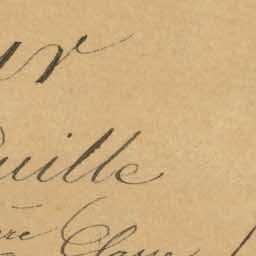 ur
uille
re Classe